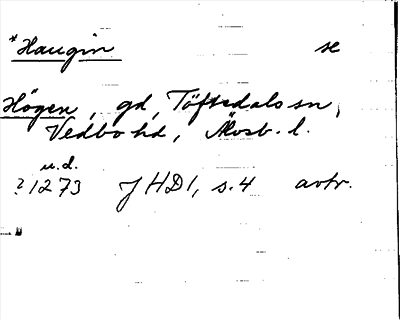 *Haugin se
Högen, gd, Töftedals sn,
Vedbo hd, Älvsb. l.
u.d.
?1273 JHD1, s.4 avtr.